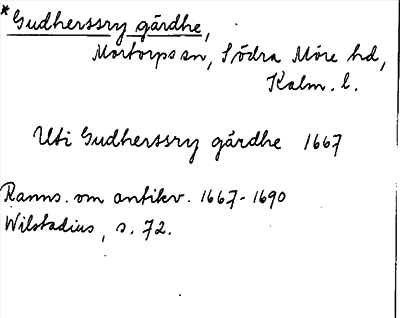 *Gudherssry gårdhe,
Mortorps sn, Södra Möre hd,
Kalm. l.
Uti Gudherssry gårdhe 1667
Ranns. om antikv. 1667-1690
Wilstadius, s. 72.